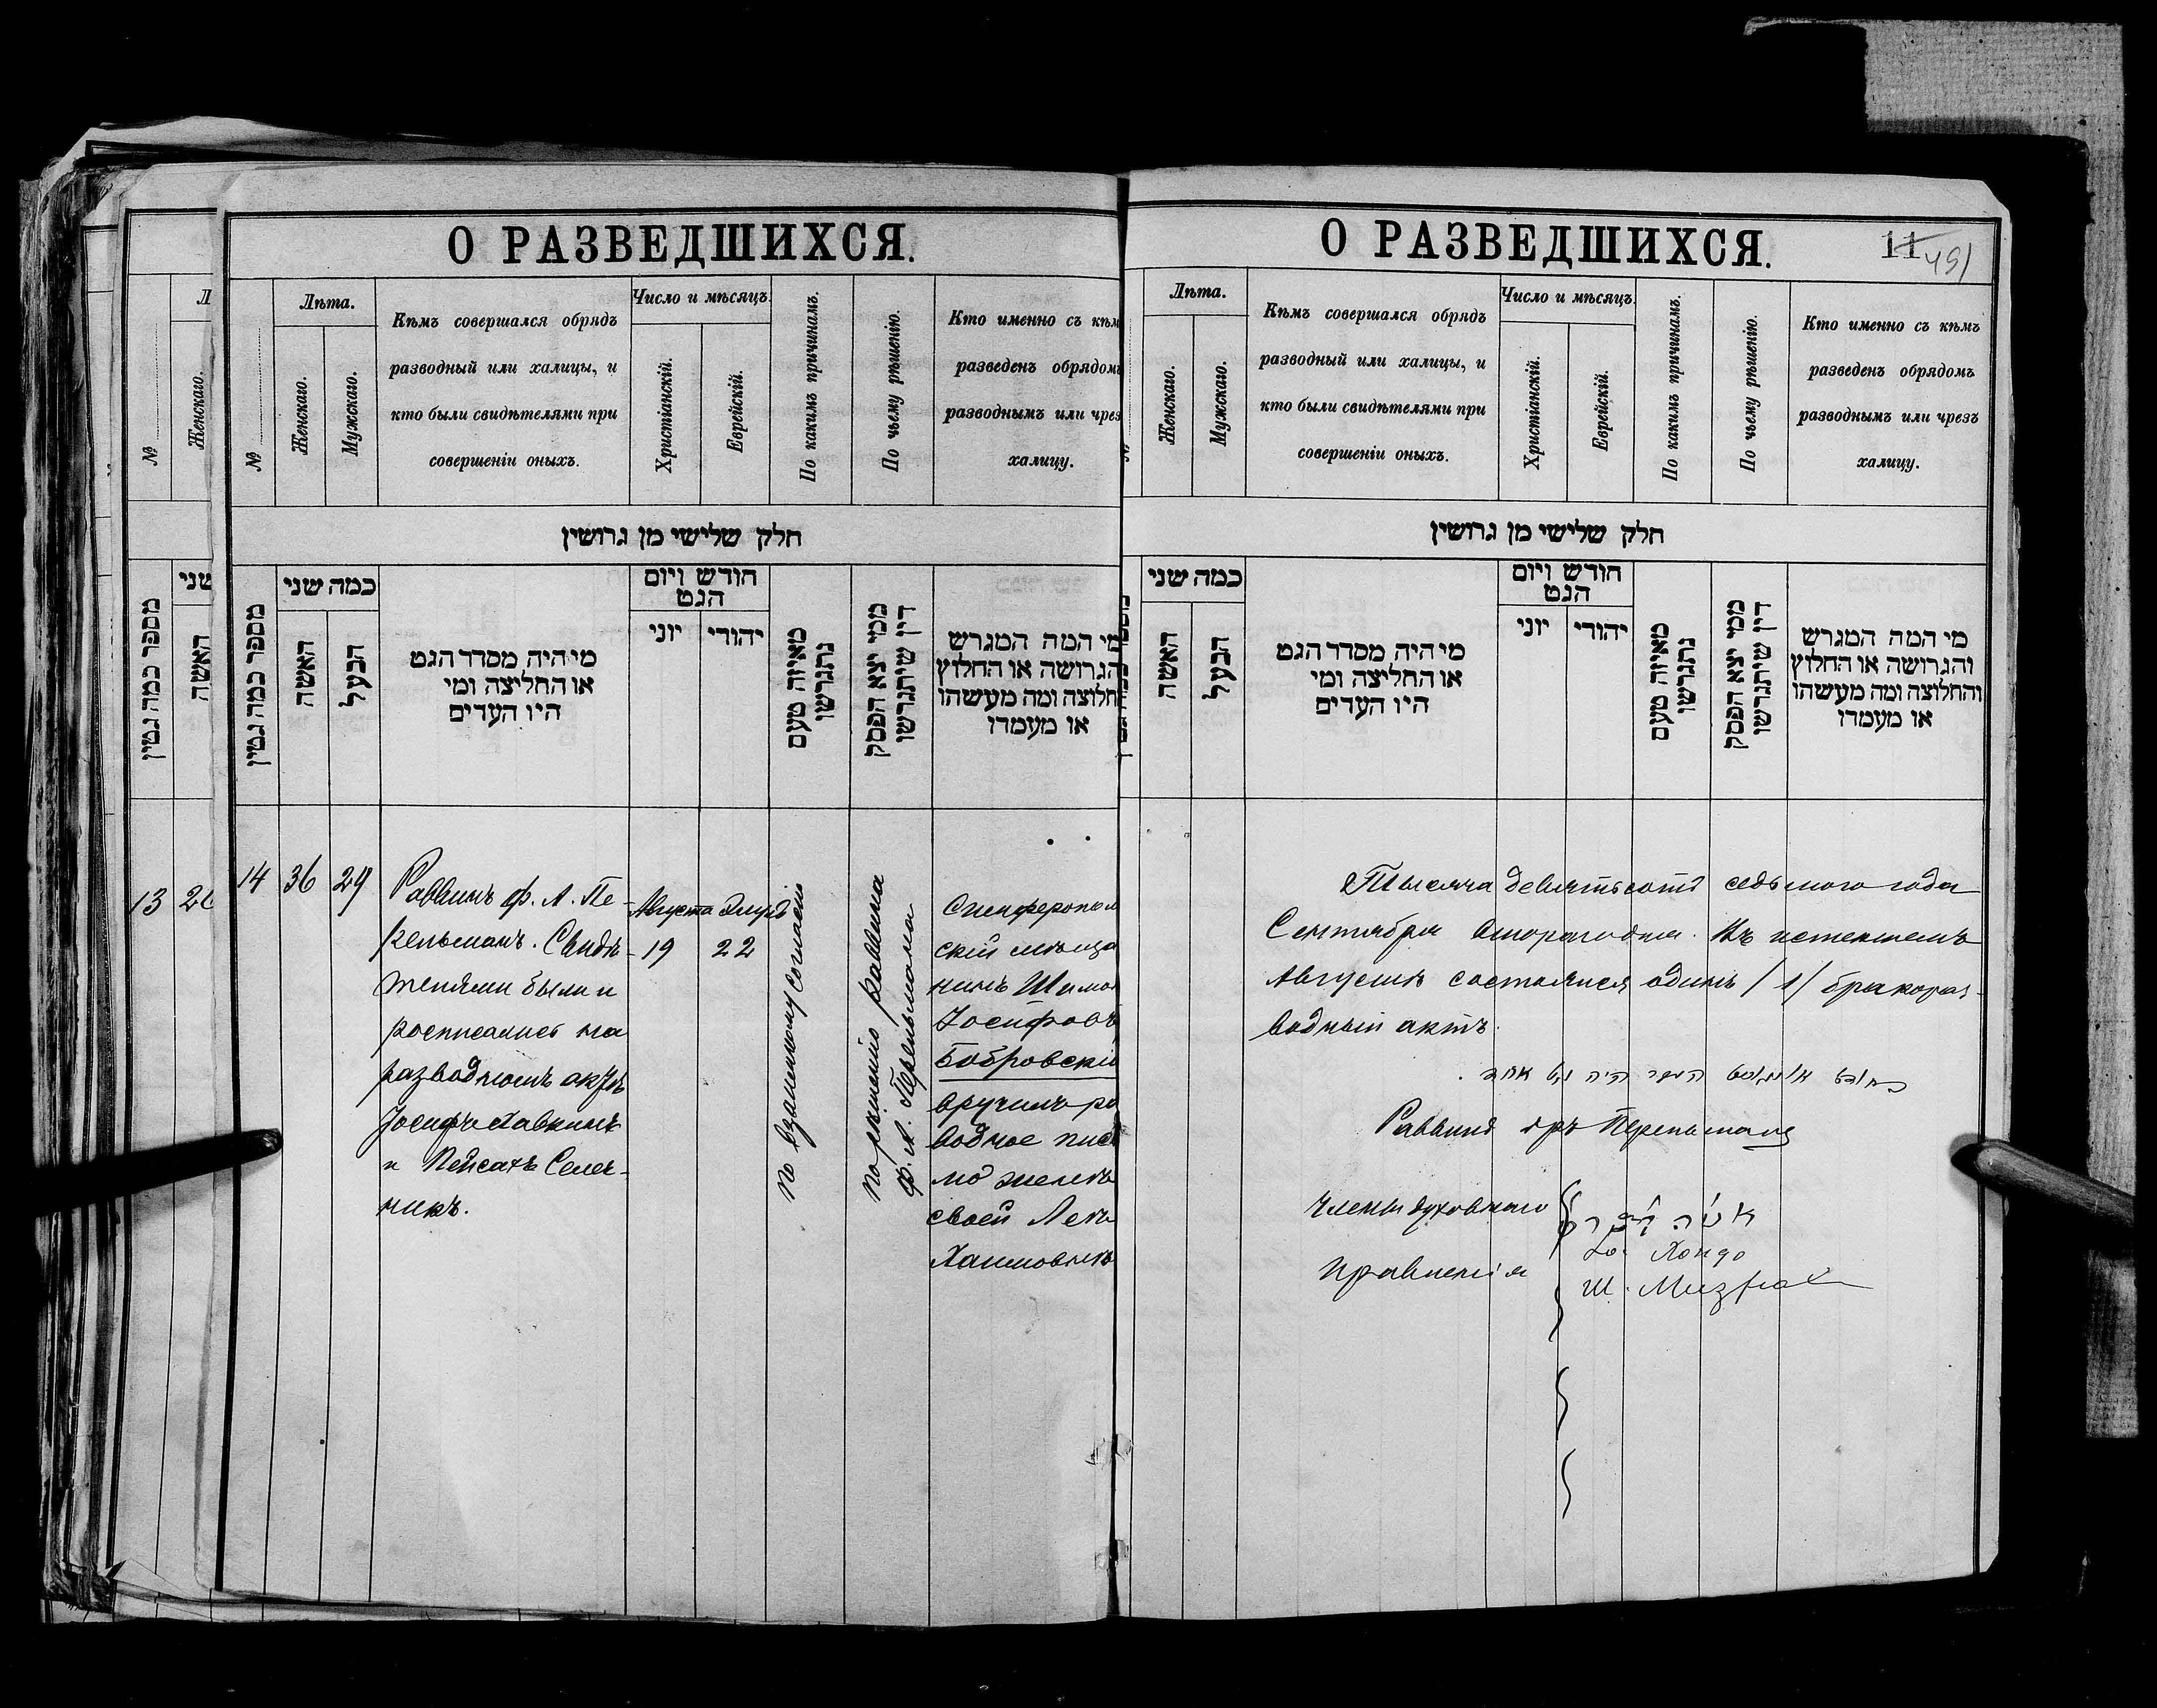 О РАЗВЕДШИХСЯ.
№
Лѣта.
Женскаго.
Мужскаго.
Кѣмъ совершался обрядъ
разводный или халицы, и
кто были свидѣтелями при
совершеніи оныхъ.
Число и мѣсяцъ.
Христіанскій.
Еврейскій.
По какимъ причинамъ.
По чьему рѣшенію.
Кто именно съ кѣм
разведенъ обрядомъ
разводнымъ или чрез
халицу.
חלק שלישי מן גרושין
מספר כמה גטין
כמה שני
האשה
הבעל
מי היה מסדר הגט
או החליצה ומי
היו העדים
חודש ויום
הגט
יוני
יהודי
מאיזה טעם
נתגרשו
ממי יצא הפסק
דין שיתגרשו
מי המה המגרש
הגרושה או החלוץ
חלוצה ומה מעשהו
או מעמדו
№
Женскаго.
מספר כמה גטין
שני
האשה
13
14 36 29
Раввинъ ф. А. Пе-
рельманъ. Свидѣ-
телями были и
росписались на
разводномъ актѣ
Іосифъ Хавкинъ
и Пейсахъ Селеч-
никъ.
Августа Элулъ
19 22
по взаимному согласію
по рѣшенію раввина
ф. А. Перельмана
Симферополь
скій мѣща
нинъ Шимон
Іосифовъ
Бобровскій
вручилъ ра
водное пись
мо женѣ
своей Леѣ
Хаимовнѣ
О РАЗВЕДШИХСЯ.
11
451
№
Лѣта.
Женскаго.
Мужскаго.
Кѣмъ совершался обрядъ
разводный или халицы, и
кто были свидѣтелями при
совершеніи оныхъ.
Число и мѣсяцъ.
Христіанскій.
Еврейскій.
По какимъ причинамъ.
По чьему рѣшенію.
Кто именно съ кѣмъ
разведенъ обрядомъ
разводнымъ или чрезъ
халицу.
חלק שלישי מן גרושין
כמה שני
האשה
הבעל
מי היה מסדר הגט
או החליצה ומי
היו העדים
חודש ויום
הגט
יוני
יהודי
מאיזה טעם
נתגרשו
ממי יצא הפסק
דין שיתגרשו
מי המה המגרש
והגרושה או החלוץ
והחלוצה ומה מעשהו
או מעמדו
Тысяча девятьсотъ седьмого года
Сентября второго дня. Въ истекшемъ
Августѣ состоялся одинъ /1/ бракораз-
водный актъ.
בחודש אוגוסט העבר היה גט אחד.
Раввинъ Перельманъ
Члены духовнаго
Правленія
Хондо
Ш. Мизрах